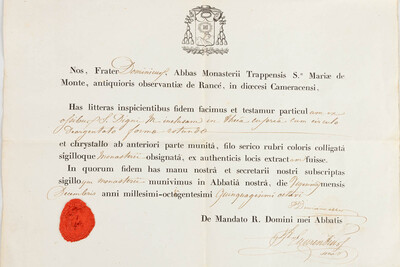 Nos, Frater Dominicus, Abbas Monasterii Trappensis S.æ Mariæ de
Monte, antiquioris observantiæ de Rancé, in diœcesi Cameracensi.
Has litteras inspicientibus fidem facimus et testamur particulam ex
ossibus S. inclusam in theca cuprea cum circulo
Deargentato forma rotunda
et chrystallo ab anteriori parte munita, filo serico rubri coloris colligatá
sigilloque monasterii obsignatá, ex authenticis locis extractam fuisse.
In quorum fidem has manu nostrá et secretarii nostri subscriptas
sigillo monasterii munivimus in Abbatiá nostrá, die mensis
Decembris anni millesimi-octogentesimi quinquagesimi octavi
De Mandato R. Domini mei Abbatis